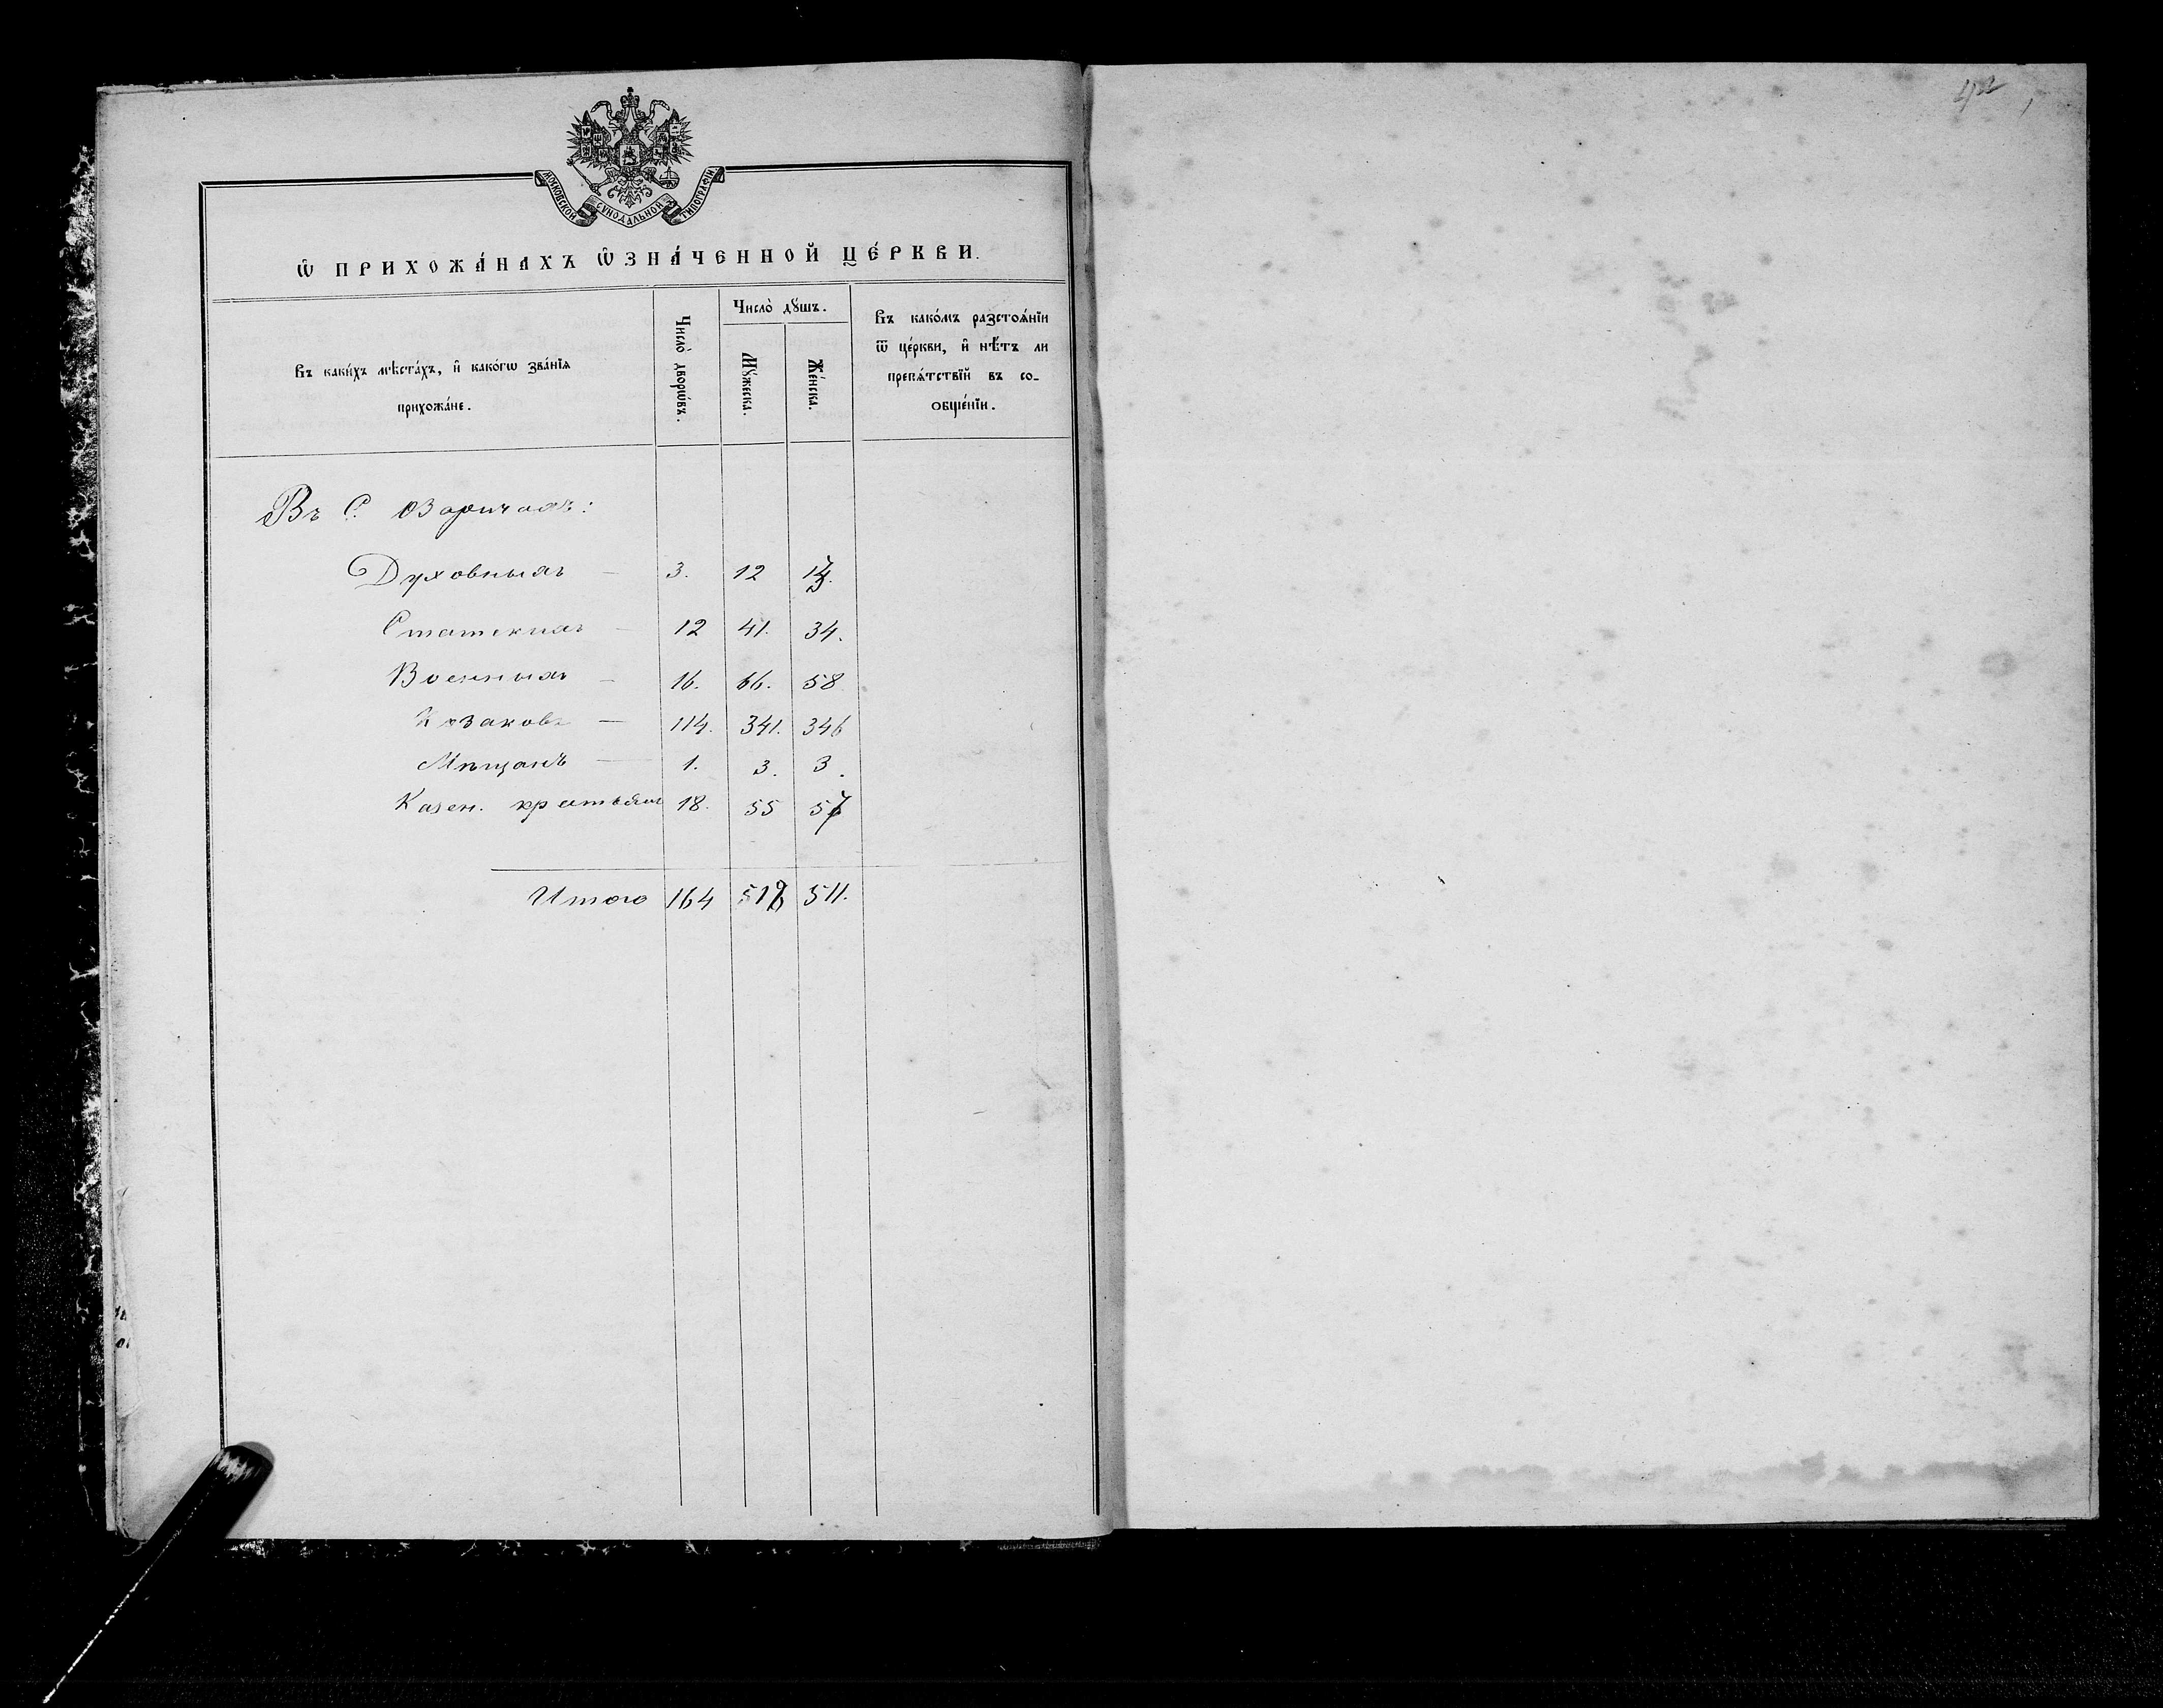 МОСКОВСКОЙ СѴНОДАЛЬНОЙ ТИПОГРАФІИ
Ѡ҆ ПРИХОЖА́НАХЪ Ѡ҆ЗНА́ЧЕННОЙ ЦЕ́РКВИ.
Въ каки́хъ мѣста́хъ, и҆ како́гѡ зва́нїѧ
прихожа́не.
Число̀ дворѡ́въ.
Число̀ дꙋшъ.
Мꙋ́жеска.
Же́нска.
Въ како́мъ разстоѧ́нїи
ѿ це́ркви, и҆ нѣ́тъ ли
препѧ́тствїй въ со-
ѻбще́нїи.
Въ С. Озаричахъ:
Духовныхъ — 3. 12
Статскихъ — 12 41. 34.
Военныхъ — 16. 66. 58
Козаковъ — 114. 341. 346
Мѣщанъ — 1. 3. 3.
Казен. крестьянъ 18. 55 57
Итого 164 518 511.